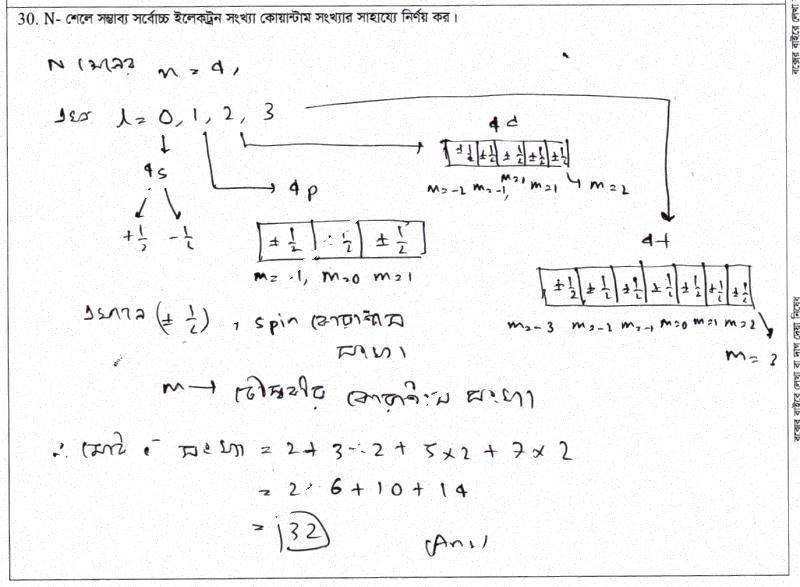 30. N- শেলে সম্ভাব্য সর্বোচ্চ ইলেকট্রন সংখ্যা কোয়ান্টাম সংখ্যার সাহায্যে নির্ণয় কর।
N শেলের n = 4,
এবং l = 0, 1, 2, 3
4d
4s
± 1/2 ± 1/2 ± 1/2 ± 1/2 ± 1/2
m=-2 m=-1, m=1 m=2
4p
+1/2 -1/2
± 1/2 1/2 ± 1/2
m= -1, m=0 m=1
4f
± 1/2 ± 1/2 ± 1/2 ± 1/2 ± 1/2 ± 1/2 ± 1/2
m=-3 m=-2 m=-1 m=0 m=1 m=2
m= 3
এখানে (± 1/2), spin কোয়ান্টাম
সংখ্যা
m → চৌম্বকীয় কোয়ান্টাম সংখ্যা
∴ মোট e⁻ সংখ্যা = 2 + 3 × 2 + 5 × 2 + 7 × 2
= 2 6 + 10 + 14
= 32
(Ans)